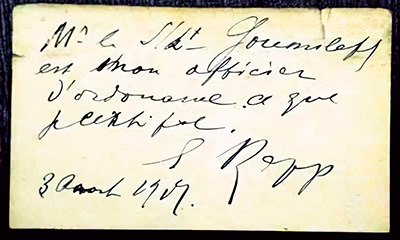 Mr le S/Lt Goumileff
est mon officier
d'ordonance ce que
je certifie.
S Rapp
3 Aout 1917.